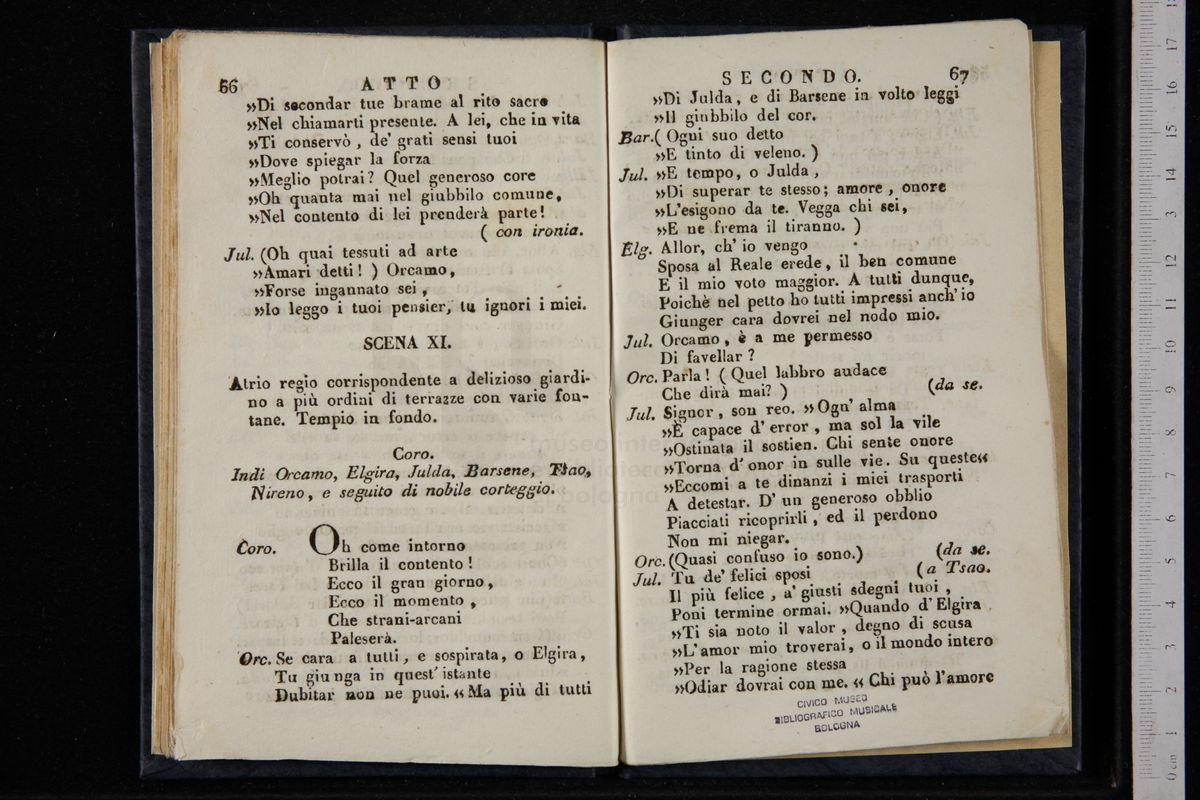 66 ATTO
»Di secondar tue brame al rito sacro
»Nel chiamarti presente. A lei, che in vita
»Ti conservò, de' grati sensi tuoi
»Dove spiegar la forza
»Meglio potrai? Quel generoso core
»Oh quanta mai nel giubbilo comune,
»Nel contento di lei prenderà parte!
( con ironia.
Jul. (Oh quai tessuti ad arte
»Amari detti! ) Orcamo,
»Forse ingannato sei,
»Io leggo i tuoi pensier, tu ignori i miei.
SCENA XI.
Atrio regio corrispondente a delizioso giardi-
no a più ordini di terrazze con varie fon-
tane. Tempio in fondo.
Coro.
Indi Orcamo, Elgira, Julda, Barsene, Tsao,
Nireno, e seguito di nobile corteggio.
Coro. Oh come intorno
Brilla il contento!
Ecco il gran giorno,
Ecco il momento,
Che strani-arcani
Paleserà.
Orc. Se cara a tutti, e sospirata, o Elgira,
Tu giunga in quest' istante
Dubitar non ne puoi. «Ma più di tutti
SECONDO. 67
»Di Julda, e di Barsene in volto leggi
»Il giubbilo del cor.
Bar. ( Ogni suo detto
»E tinto di veleno. )
Jul. »E tempo, o Julda,
»Di superar te stesso; amore, onore
»L'esigono da te. Vegga chi sei,
»E ne frema il tiranno. )
Elg. Allor, ch' io vengo
Sposa al Reale erede, il ben comune
E il mio voto maggior. A tutti dunque,
Poichè nel petto ho tutti impressi anch' io
Giunger cara dovrei nel nodo mio.
Jul. Orcamo, è a me permesso
Di favellar?
Orc. Parla! ( Quel labbro audace
Che dirà mai? ) (da se.
Jul. Signor, son reo. »Ogn' alma
»È capace d' error, ma sol la vile
»Ostinata il sostien. Chi sente onore
»Torna d' onor in sulle vie. Su queste«
»Eccomi a te dinanzi i miei trasporti
A detestar. D' un generoso obblio
Piacciati ricoprirli, ed il perdono
Non mi niegar.
Orc. (Quasi confuso io sono.) (da se.
Jul. Tu de' felici sposi (a Tsao.
Il più felice, a' giusti sdegni tuoi,
Poni termine ormai. »Quando d' Elgira
»Ti sia noto il valor, degno di scusa
»L' amor mio troverai, o il mondo intero
»Per la ragione stessa
»Odiar dovrai con me. « Chi può l'amore
CIVICO MUSEO
BIBLIOGRAFICO MUSICALE
BOLOGNA